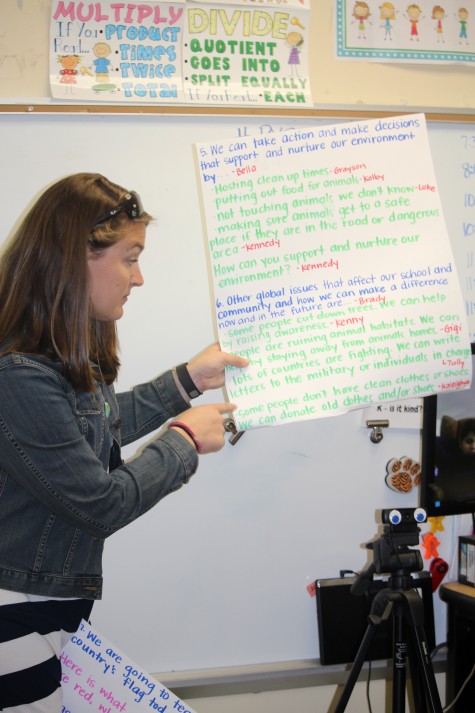 MULTIPLY
If You Read...
• PRODUCT
• TIMES
• TWICE
• TOTAL
DIVIDE
• QUOTIENT
• GOES INTO
• SPLIT EQUALLY
If You Read... • EACH
5. We can take action and make decisions
that support and nurture our environment
by... -Bella
-Hosting clean up times -Grayson
-putting out food for animals -Kolby
-not touching animals we don't know -Luke
-making sure animals get to a safe
place if they are in the road or dangerous
area -Kennedy
How can you support and nurture our
environment? -Kennedy
6. Other global issues that affect our school and
community and how we can make a difference
now and in the future are... -Brady
-some people cut down trees. We can help
by raising awareness. -Kenny
people are ruining animal habitats. We can
staying away from animals' homes. -Gigi
lots of countries are fighting. We can write
letters to the military or individuals in charge
Tully
some people don't have clean clothes or shoes.
We can donate old clothes and/or shoes.
K - is it kind?
7. We are going to te
country's flag tod
Here is what
re red, wh